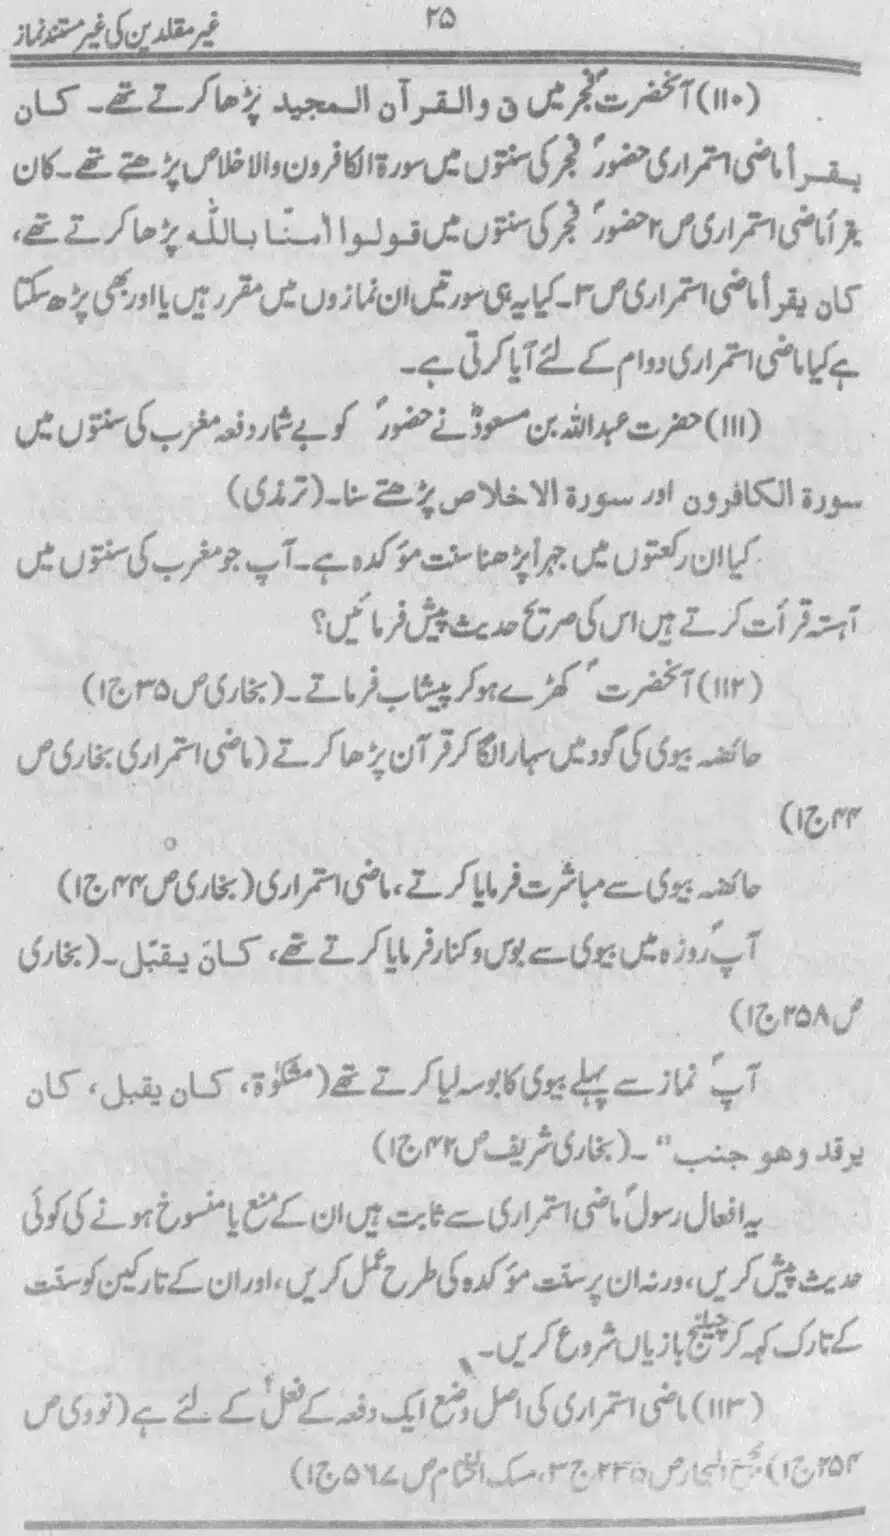 غیر مقلدین کی غیر مستند نماز
۲۵
(۱۱۰) آنحضرتؐ فجر میں ق والقرآن المجید پڑھا کرتے تھے۔ کان
یقرأ ماضی استمراری حضورؐ فجر کی سنتوں میں سورۃ الکافرون والاخلاص پڑھتے تھے۔ کان
یقرأ ماضی استمراری ص۲ حضورؐ فجر کی سنتوں میں قولوا اٰمنّا باللّٰہ پڑھا کرتے تھے،
کان یقرأ ماضی استمراری ص۳۔ کیا یہ ہی سورتیں ان نمازوں میں مقرر ہیں یا اور بھی پڑھ سکتا
ہے کیا ماضی استمراری دوام کے لئے آیا کرتی ہے۔
(۱۱۱) حضرت عبداللہ بن مسعودؓ نے حضورؐ کو بے شمار دفعہ مغرب کی سنتوں میں
سورۃ الکافرون اور سورۃ الاخلاص پڑھتے سنا۔ (ترمذی)
کیا ان رکعتوں میں جہراً پڑھنا سنت مؤکدہ ہے۔ آپ جو مغرب کی سنتوں میں
آہستہ قرأت کرتے ہیں اس کی صریح حدیث پیش فرمائیں؟
(۱۱۲) آنحضرتؐ کھڑے ہو کر پیشاب فرماتے۔ (بخاری ص۳۵ ج۱)
حائضہ بیوی کی گود میں سہارا لگا کر قرآن پڑھا کرتے (ماضی استمراری بخاری ص
۴۴ ج۱)
حائضہ بیوی سے مباشرت فرمایا کرتے، ماضی استمراری (بخاری ص۴۴ ج۱)
آپؐ روزہ میں بیوی سے بوس و کنار فرمایا کرتے تھے، کان یقبّل۔ (بخاری
ص۲۵۸ ج۱)
آپؐ نماز سے پہلے بیوی کا بوسہ لیا کرتے تھے (مشکوٰۃ، کان یقبل، کان
یرقد وھو جنب“۔ (بخاری شریف ص۴۲ ج۱)
یہ افعال رسولؐ ماضی استمراری سے ثابت ہیں ان کے منع یا منسوخ ہونے کی کوئی
حدیث پیش کریں، ورنہ ان پر سنّت مؤکدہ کی طرح عمل کریں، اور ان کے تارکین کو سنّت
کے تارک کہہ کر چیلنج بازیاں شروع کریں۔
(۱۱۳) ماضی استمراری کی اصل وضع ایک دفعہ کے فعل کے لئے ہے (نووی ص
۲۵۴ ج۱) مجمع البحار ص۲۳۵ ج۳، مسک الختام ص۵۶۷ ج۱)